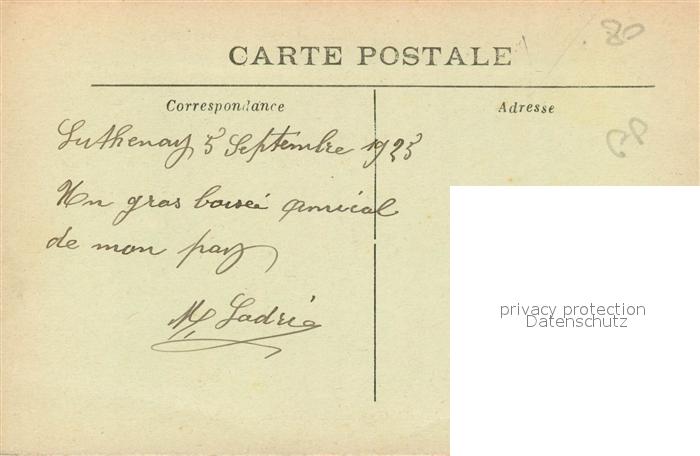 80
CARTE POSTALE
Correspondance
Adresse
Luthenay 5 Septembre 1925
Un gros baiseé amical
de mon pay
privacy protection
Datenschutz
M Ladrié